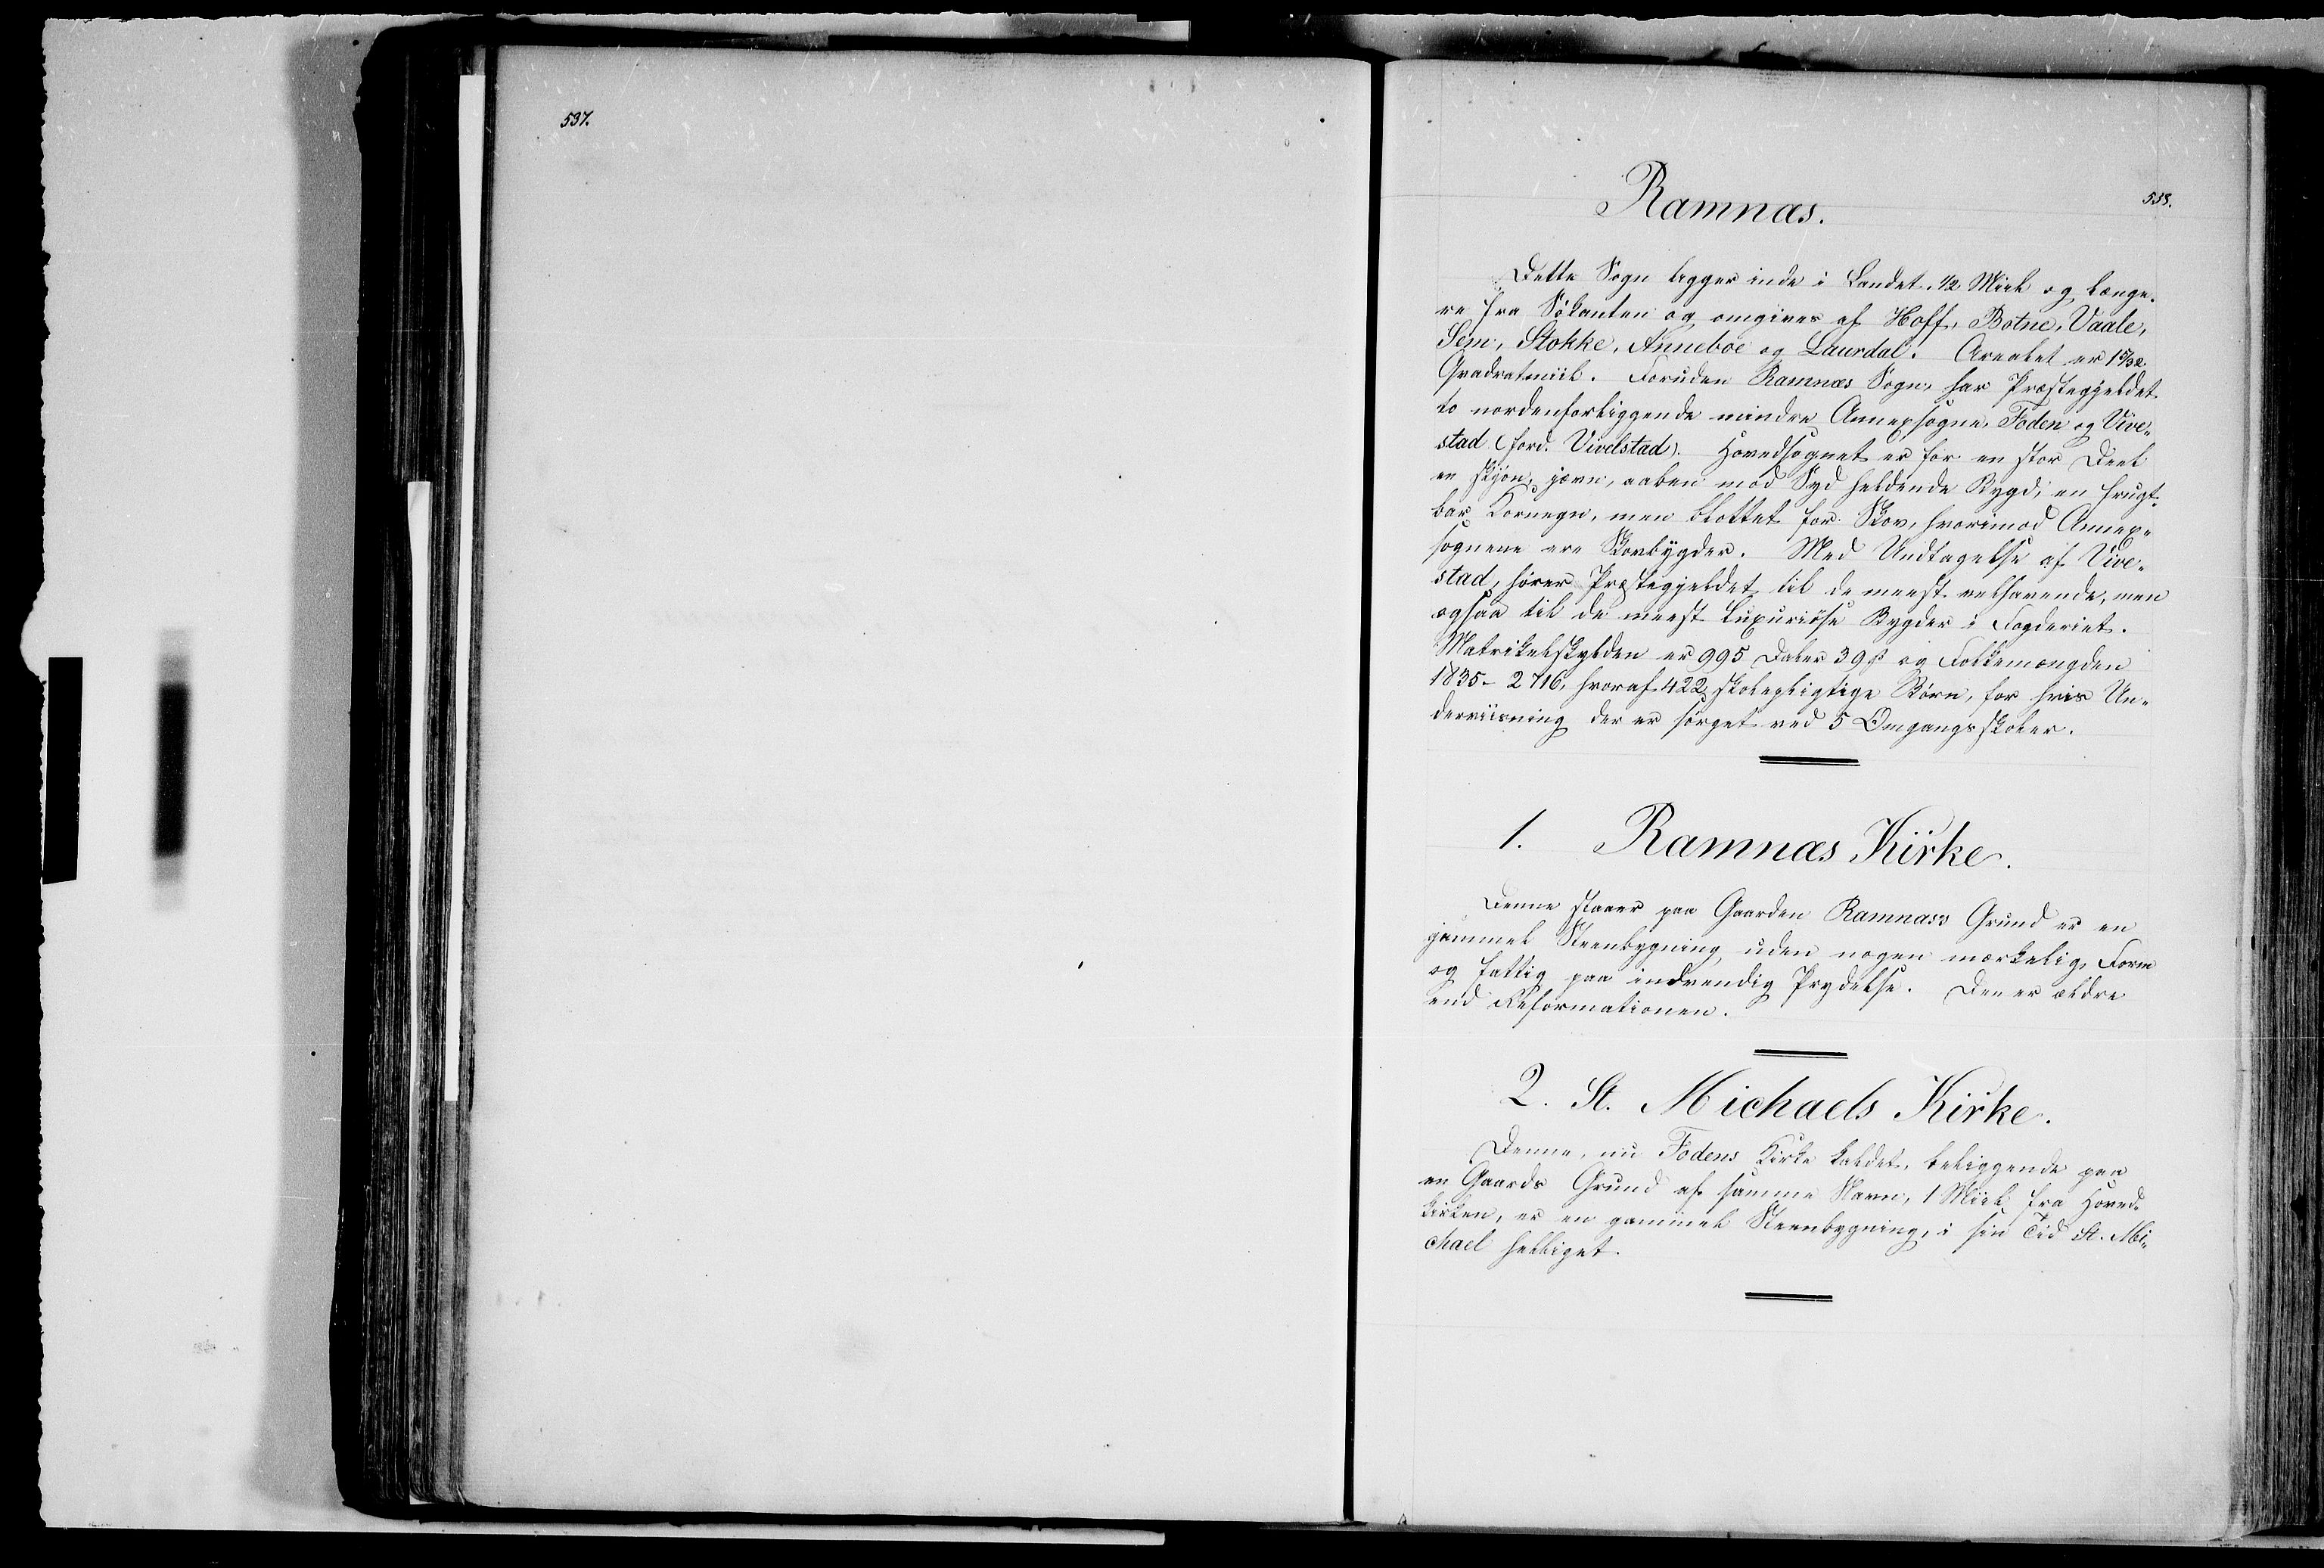 537.
558.
Ramnæs.
Dette Sogn ligger inde i Landet, 1/2 Miil og længe-
re fra Søkanten og omgives af Hoff, Botne, Vaale,
Sem, Stokke, Anneboe og Laurdal. Arealet er
Qvadratmiil. Foruden Ramnæs Sogn, har Præstegjeldet
to nordenforliggende mindre Annexsogne, Foden og Vive-
stad (ford. Vivelstad). Hovedsognet er for en stor Deel
en skjøn, jævn, aaben mod Syd heldende Bygd, en frugt-
bar Kornegn, men blottet for Skov, hvorimod Annex-
sognene ere Skovbygder. Med Undtagelse af Vive-
stad, hører Præstegjeldet til de meest velhavende, men
ogsaa til de meest luxuriøse Bygder i Fogderiet.
Matrikelskylden er 995 Daler 39 ß og Folkemængden
1835 - 2716, hvoraf 422 skolepligtige Børn, for hvis Un-
derviisning der er sørget ved 5 Omgangsskoler.
1. Ramnæs Kirke.
Denne staaer paa Gaarden Ramnæss Grund er en
gammel Steenbygning uden nogen mærkelig Form
og fattig paa indvendig Prydelse. Den er ældre
end Reformationen.
2. St. Michaels Kirke.
Denne, nu Fodens Kirke kaldet, beliggende paa
en Gaards Grund af samme Navn, 1 Miil fra Hoved-
kirken, er en gammel Steenbygning, i sin Tid St. Mi-
chael helliget.